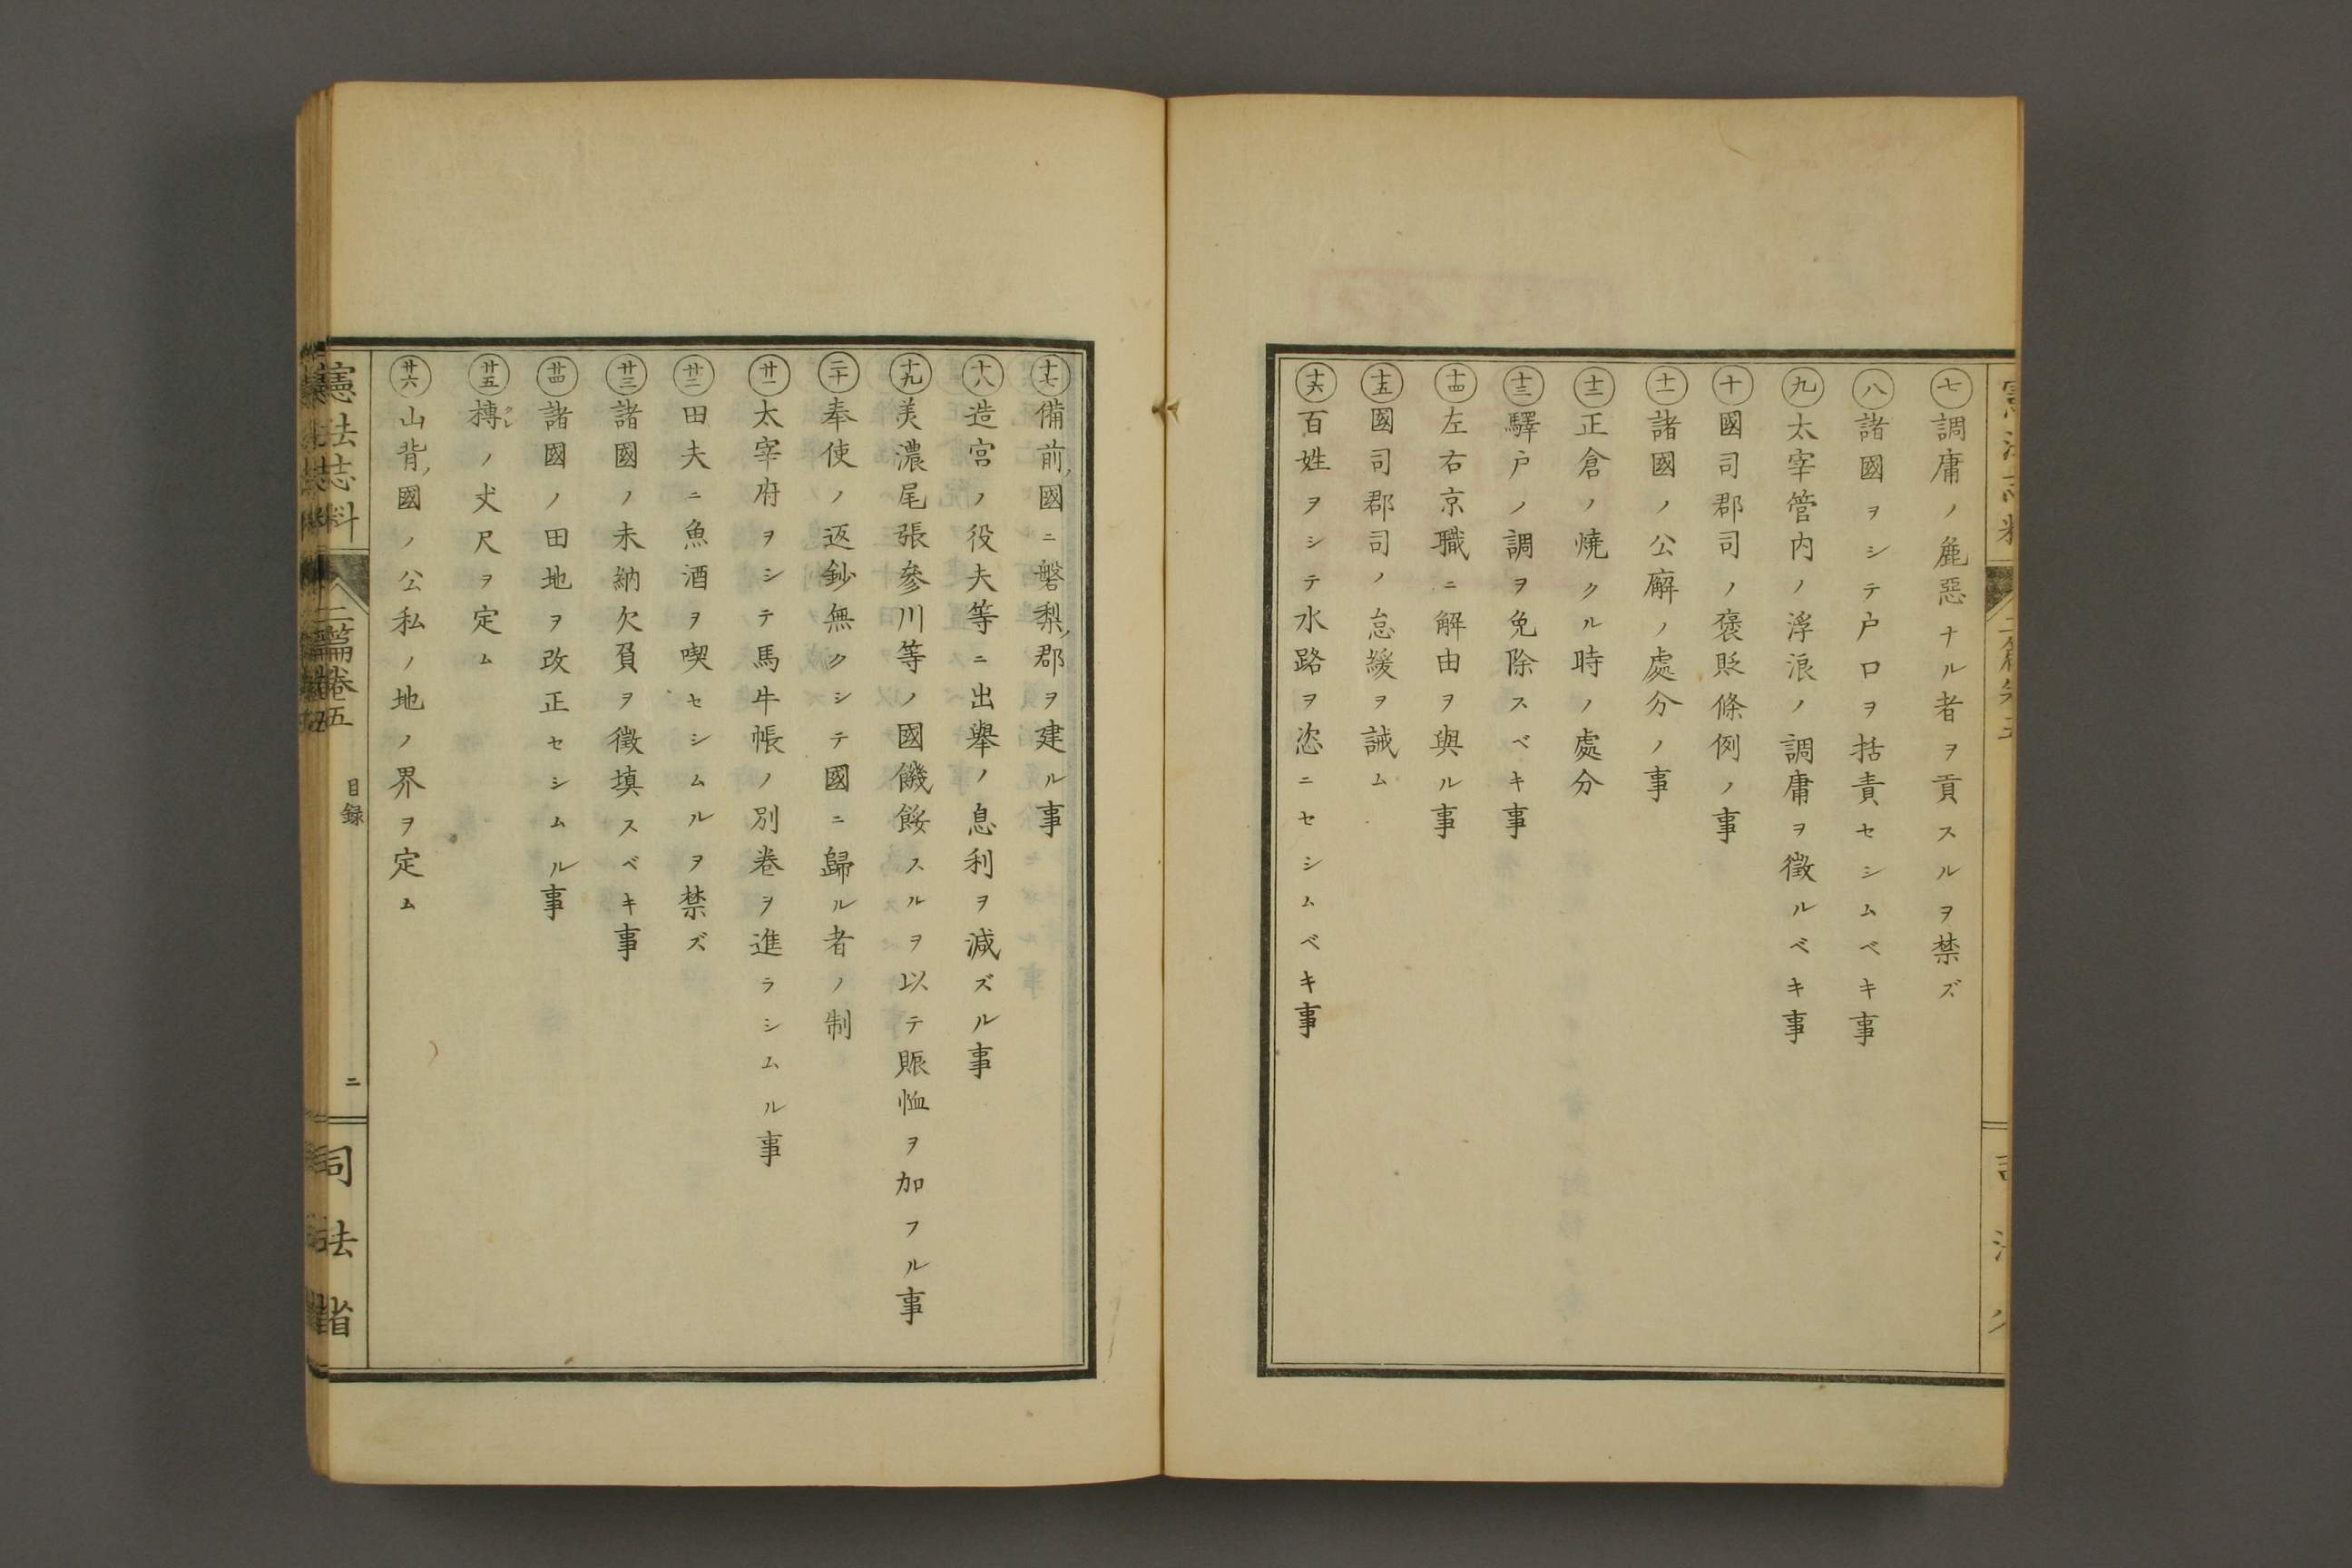 七 調庸ノ麁惡ナル者ヲ貢スルヲ禁ズ
八 諸國ヲシテ戸口ヲ括責セシムベキ事
九 太宰管内ノ浮浪ノ調庸ヲ徴ルベキ事
十 國司郡司ノ褒貶條例ノ事
十一 諸國ノ公廨ノ處分ノ事
十二 正倉ノ燒クル時ノ處分
十三 驛戸ノ調ヲ免除スベキ事
十四 左右京職ニ解由ヲ與ル事
十五 國司郡司ノ怠緩ヲ誡ム
十六 百姓ヲシテ水路ヲ恣ニセシムベキ事
十七 備前國ニ磐梨郡ヲ建ル事
十八 造宮ノ役夫等ニ出擧ノ息利ヲ減ズル事
十九 美濃尾張參川等ノ國饑餒スルヲ以テ賑恤ヲ加フル事
二十 奉使ノ返鈔無クシテ國ニ歸ル者ノ制
廿一 太宰府ヲシテ馬牛帳ノ別卷ヲ進ラシムル事
廿二 田夫ニ魚酒ヲ喫セシムルヲ禁ズ
廿三 諸國ノ未納欠負ヲ徴填スベキ事
廿四 諸國ノ田地ヲ改正セシムル事
廿五 榑クレノ丈尺ヲ定ム
廿六 山背國ノ公私ノ地ノ界ヲ定ム
憲法志料 二篇卷五 目録 二 司法省